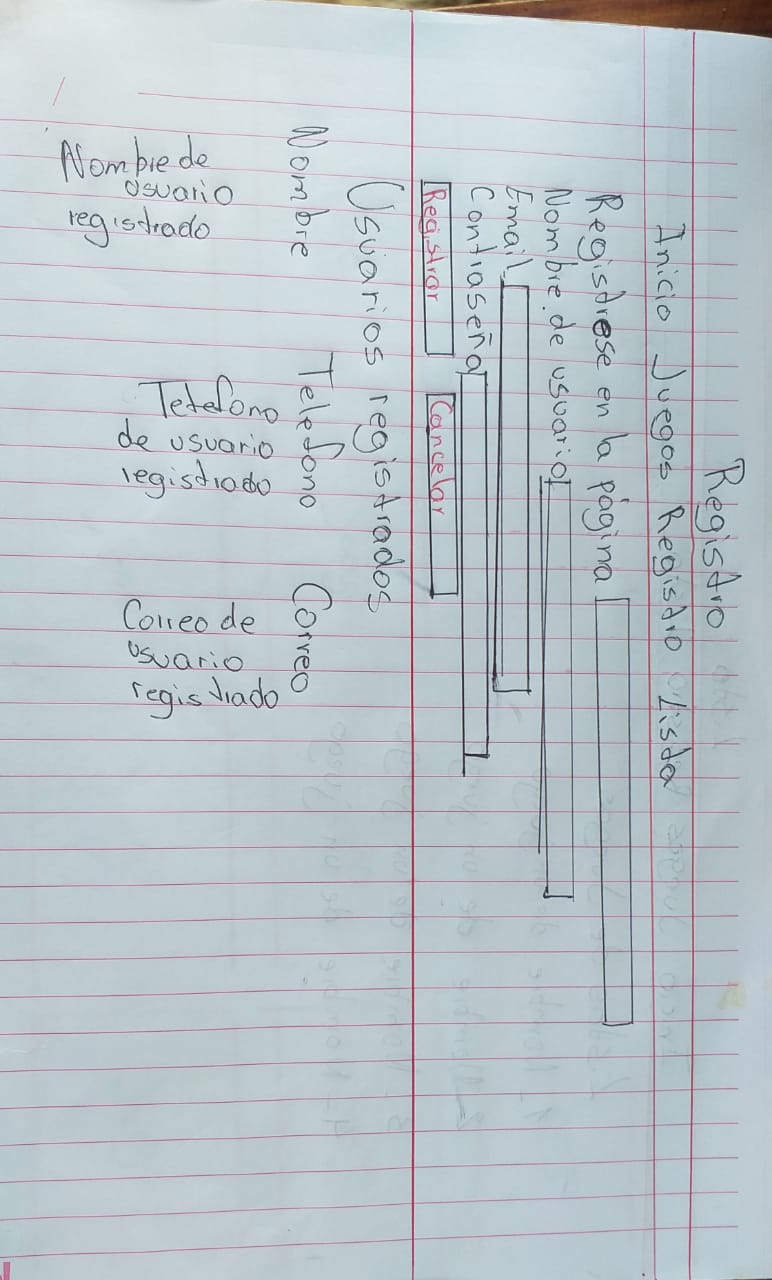 Registro
Inicio Juegos Registro Lista
Registrese en la página
Nombre de usuario
Email
Contraseña
Registrar Cancelar
Usuarios registrados
Nombre Telefono Correo
Nombre de usuario registrado
Telefono de usuario registrado
Correo de usuario registrado